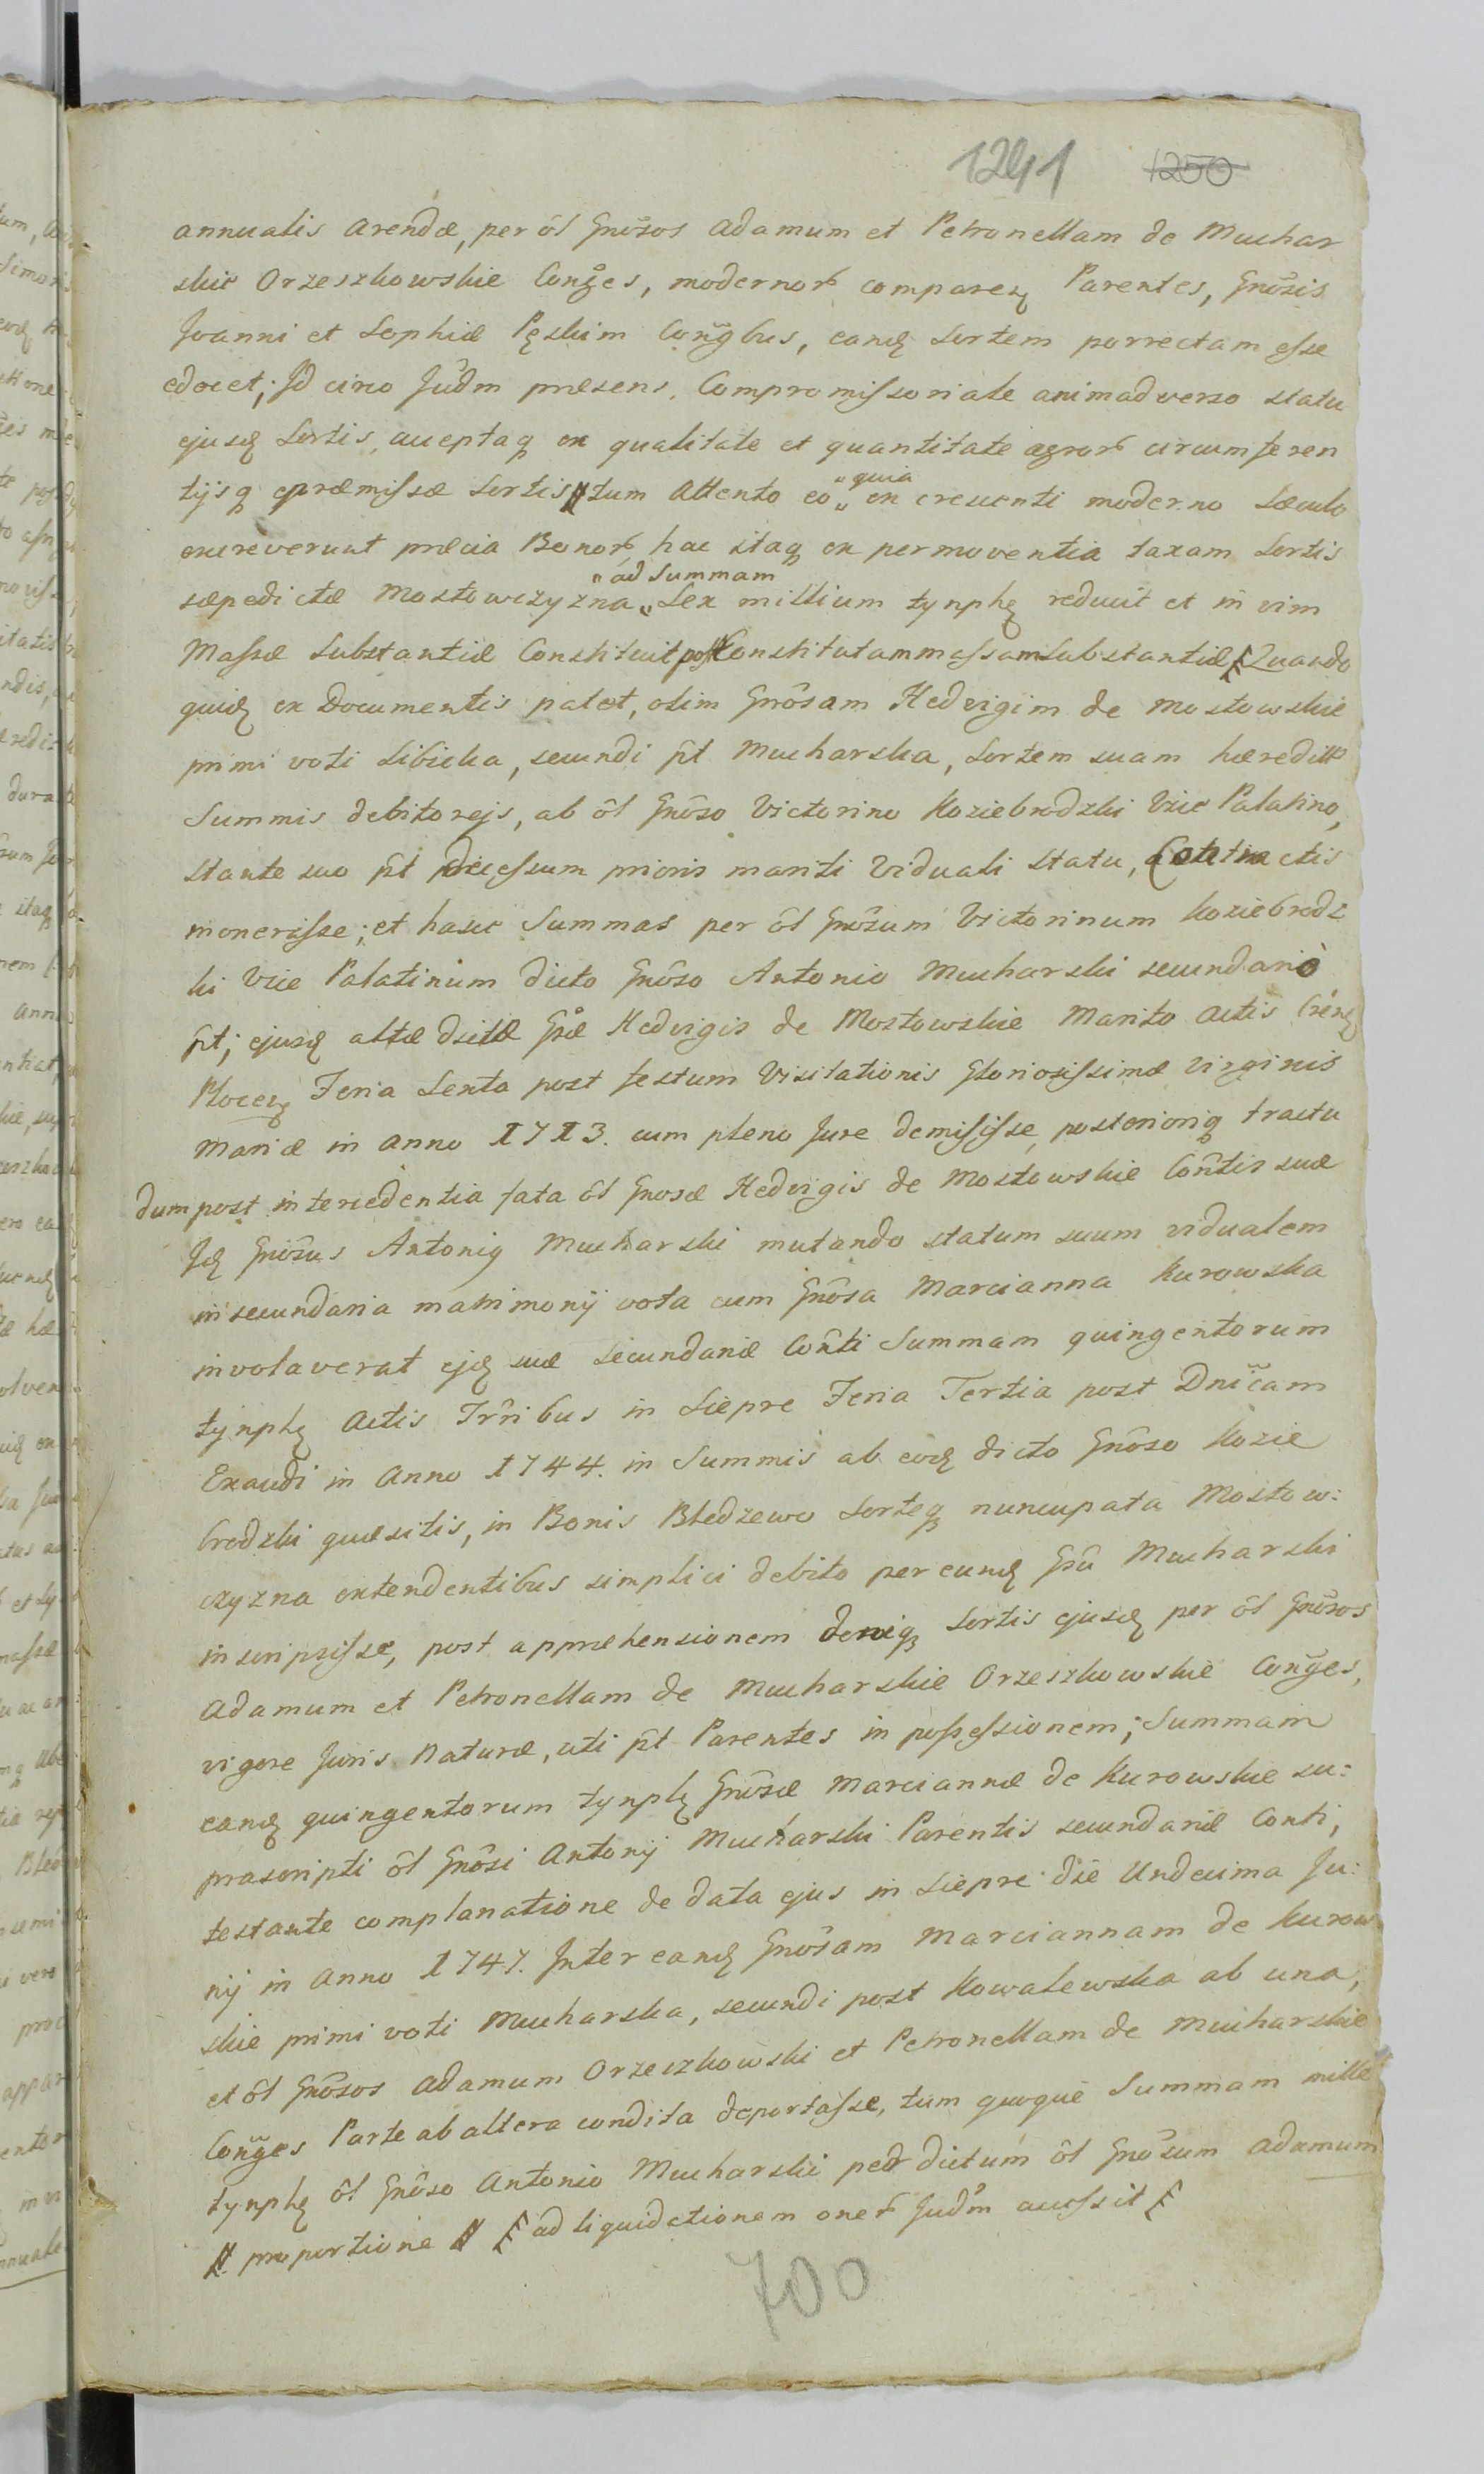 1241 1250
annualis arendæ, per ôl Gnôsos Adamum et Petronellam de Muchar
skie Orzeszkowskie Conges, modernor comparen Parentes, Gnôsis
Joanni et Sophiæ Pęskim Congbus, eandę Sortem porrectam esse
edocet; Id circo Judm præsens, Compromissoriale animadverso statu
ejusdę Sortis, acceptaq ex qualitate et quantitate agror circumferen
tijsq præmissæ Sortis # tum Attento eo "quia" ex crescenti moderno Sæculo
excreverunt præcia Bonor, hac itaq ex permoventia taxam Sortis
sæpedictæ Mostowczyzna "ad Summam" Sex millium tynphę reduxit et in vim
Massæ Substantiæ Constituit post Constitutam massam Substantiæ Quando
quidę ex Documentis patet, olim Gnôsam Hedvigim de Mostowskie
primi voti Sibicka, secundi pt Mucharska, Sortem suam hæredit
Summis debitorejs, ab ôl Gnôso Victorino Koziebrodzki Vice Palatino,
stante suo pt decessum prioris mariti Viduali Statu, Contractis
inonerasse; et hasce Summas per ôl Gnôsum Victorinum Koziebrodz
ki Vice Palatinum dicto Gnôso Antonio Mucharski secundario
pt; ejusdę altæ dictæ Gsæ Hedvigis de Mostowskie Marito Actis
Plocen Feria Sexta post festum Visitationis Gloriosissimæ Virginis
Mariæ in Anno 1713. cum pleno Jure demisisse, posteriorig tractu
dum post intercedentia fata ôl Gnosæ Hedvigis de Mostowskie Contis suæ
Idę Gnôsus Antonig Mucharski mutando statum suum vidualem
in secundaria matrimonij vota cum Gnôsa Marcianna Kurowska
involaverat ejdę suæ Secundariæ Conti Summam quingentorum
tynphę Actis Trribus in Sieprc Feria Tertia post Dnicam
Exaudi in Anno 1744. in Summis ab eodę dicto Gnôso Kozie
brodzki quæsitis, in Bonis Bledzewo Sorteq nuncupata Mostow:
czyzna extendentibus simplici debito per eundę Gsu Mucharski
inscripsisse, post appræhensionem deniq Sortis ejusdę per ôl Gnôsos
Adamum et Petronellam de Mucharskie Orzeszkowskie Conges,
vigore Juris Naturæ, uti pt Parentes in possessionem; Summam
eandę quingentorum tynphę Gnôsæ Marciannæ de Kurowskie su:
prascripti ôl Gnôsi Antonij Mucharski Parentis secundariæ Conti,
testante complanatione de data ejus in Sieprc die Undecima Ju:
nij in Anno 1747. Inter eandę Gnôsam Marciannam de Kurow
skie primi voti Mucharska, secundi post Kowalewska ab una,
et ôl Gnôsos Adamum Orzeszkowski et Petronellam de Mucharskie
Conges Parte ab altera condita deportasse, tum quoque Summam mille
tynphę ôl Gnôso Antonio Mucharski per dictum ôl Gnôsum Adamum
# proportione # ad liquidationem oner Judm accessit
700